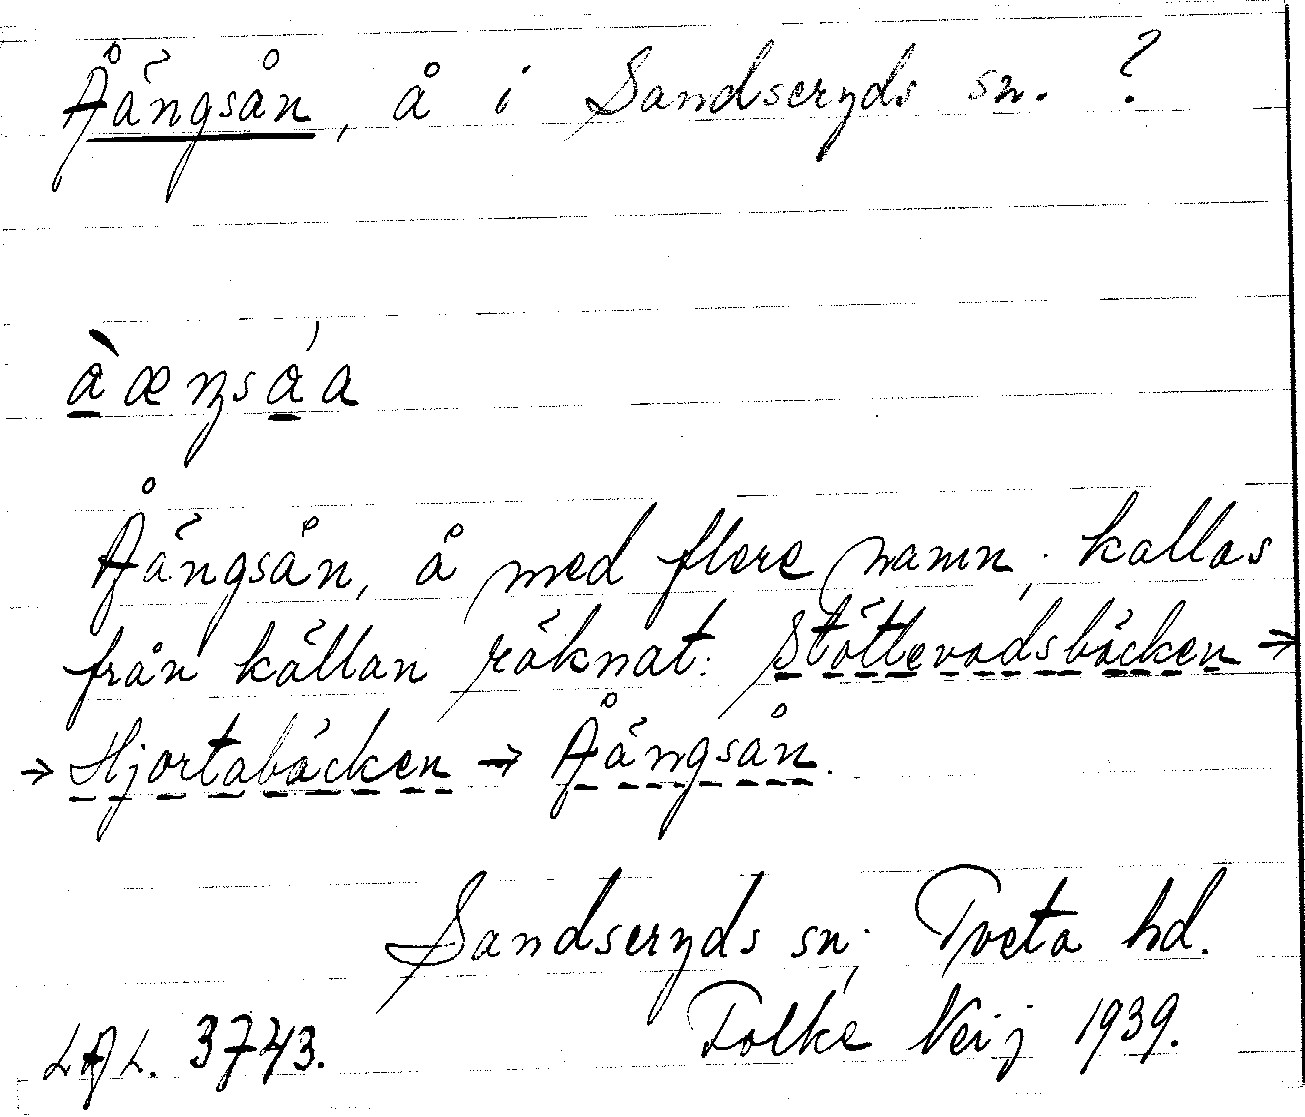 Åängsån, å i Sandseryds sn. ?
å̀æŋsåa
Åängsån, å med flere namn, kallas
från källan räknat: Stättevadsbäcken →
→ Hjortabäcken → Åängsån.
Sandseryds sn, Tveta hd.
LAL. 3743. Folke Neij 1939.